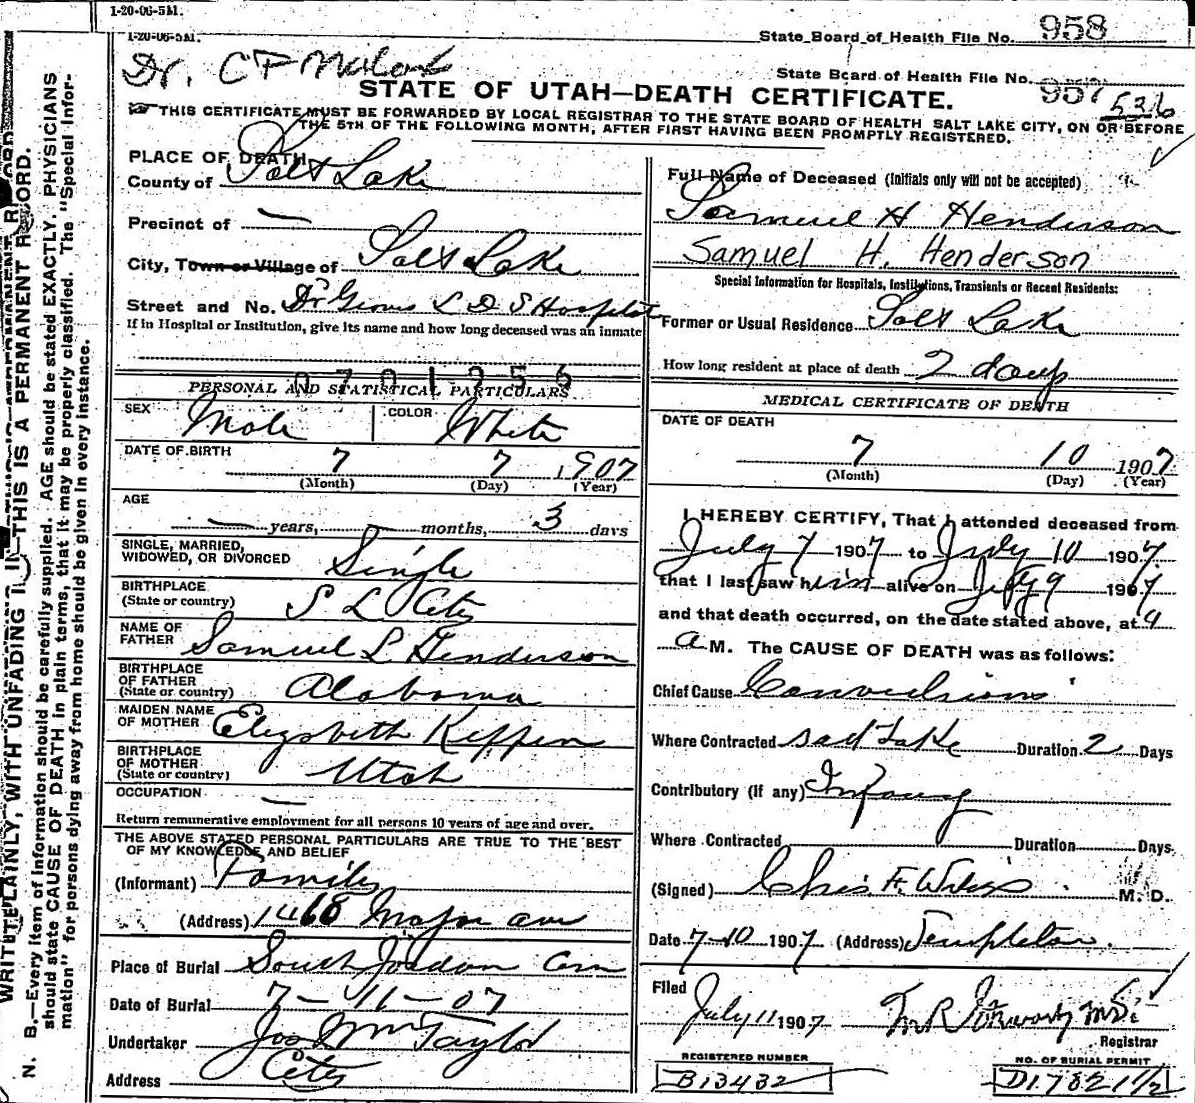 1-20-06-5M.
1-20-06-5M.
State Board of Health File No. 958
Dr. C F
State Board of Health File No. 957
536
STATE OF UTAH—DEATH CERTIFICATE.
THIS CERTIFICATE MUST BE FORWARDED BY LOCAL REGISTRAR TO THE STATE BOARD OF HEALTH SALT LAKE CITY, ON OR BEFORE
THE 5TH OF THE FOLLOWING MONTH, AFTER FIRST HAVING BEEN PROMPTLY REGISTERED.
PLACE OF DEATH
County of Salt Lake
Precinct of —
City, Town or Village of Salt Lake
Street and No. Dr Groves L D S Hospital
If in Hospital or Institution, give its name and how long deceased was an inmate
0701256
PERSONAL AND STATISTICAL PARTICULARS
SEX Male COLOR White
DATE OF BIRTH 7 7 1907
(Month) (Day) (Year)
AGE
— years, months, 3 days
SINGLE, MARRIED,
WIDOWED, OR DIVORCED Single
BIRTHPLACE
(State or country) S L City
NAME OF
FATHER Samuel L Henderson
BIRTHPLACE
OF FATHER
(State or country) Alabama
MAIDEN NAME
OF MOTHER Elizabeth Keppen
BIRTHPLACE
OF MOTHER
(State or country) Utah
OCCUPATION —
Return remunerative employment for all persons 10 years of age and over.
THE ABOVE STATED PERSONAL PARTICULARS ARE TRUE TO THE BEST
OF MY KNOWLEDGE AND BELIEF
(Informant) Family
(Address) 1468 Major ave
Place of Burial South Jordan Cem
Date of Burial 7-11-07
Undertaker Jos Wm Taylor
Address City
Full Name of Deceased (Initials only will not be accepted)
Samuel H Henderson
Samuel H. Henderson
Special Information for Hospitals, Institutions, Transients or Recent Residents:
Former or Usual Residence Salt Lake
How long resident at place of death 2 days
MEDICAL CERTIFICATE OF DEATH
DATE OF DEATH
7 10 1907
(Month) (Day) (Year)
I HEREBY CERTIFY, That I attended deceased from
July 7 1907 to July 10 1907.
that I last saw him alive on July 9 1907
and that death occurred, on the date stated above, at 9
a M. The CAUSE OF DEATH was as follows:
Chief Cause Convulsions
Where Contracted Salt Lake Duration 2 Days
Contributory (if any) Infancy
Where Contracted Duration Days
(Signed) Chris F. M. D.
Date 7-10 1907 (Address) Templeton.
Filed
July 11 1907 M.D.
Registrar
REGISTERED NUMBER
B13432
NO. OF BURIAL PERMIT
D1782 1 1/2
WRITE PLAINLY, WITH UNFADING INK—THIS IS A PERMANENT RECORD.
N. B.—Every item of information should be carefully supplied. AGE should be stated EXACTLY. PHYSICIANS
should state CAUSE OF DEATH in plain terms, that it may be properly classified. The "Special Infor-
mation" for persons dying away from home should be given in every instance.